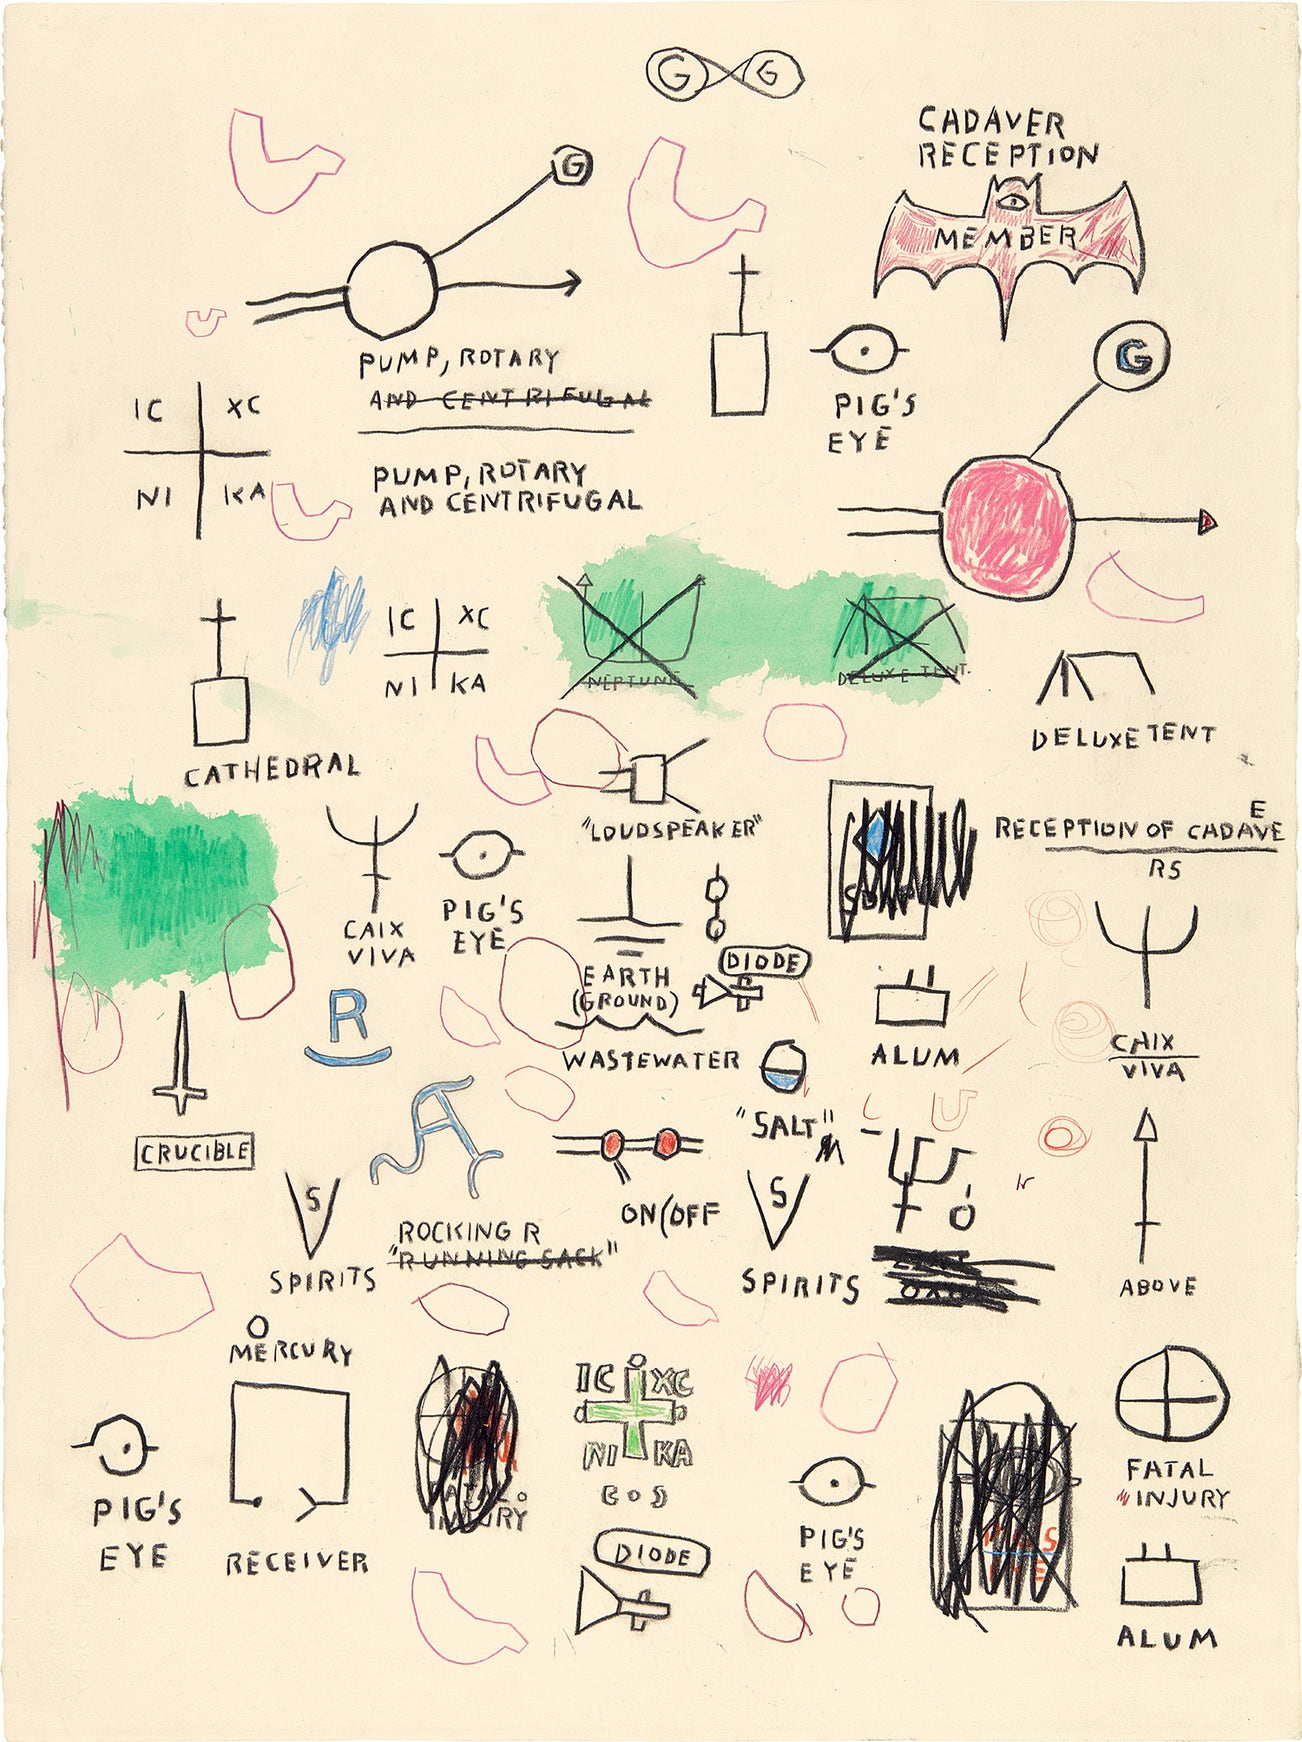 G G
CADAVER
RECEPTION
MEMBER
G
PUMP, ROTARY
AND CENTRIFUGAL
PUMP, ROTARY
AND CENTRIFUGAL
IC XC
NI KA
PIG'S
EYE
G
IC XC
NI KA
NEPTUNE
DELUXE TENT.
DELUXE TENT
CATHEDRAL
"LOUDSPEAKER"
E
RECEPTION OF CADAVE
RS
CAIX
VIVA
PIG'S
EYE
EARTH
(GROUND)
DIODE
WASTEWATER
ALUM
CAIX
VIVA
R
CRUCIBLE
"SALT"
ON/OFF
S
SPIRITS
ROCKING R
"RUNNING SACK"
S
SPIRITS
ABOVE
MERCURY
PIG'S
EYE
RECEIVER
INJURY
IC XC
NI KA
DIODE
PIG'S
EYE
FATAL
INJURY
ALUM